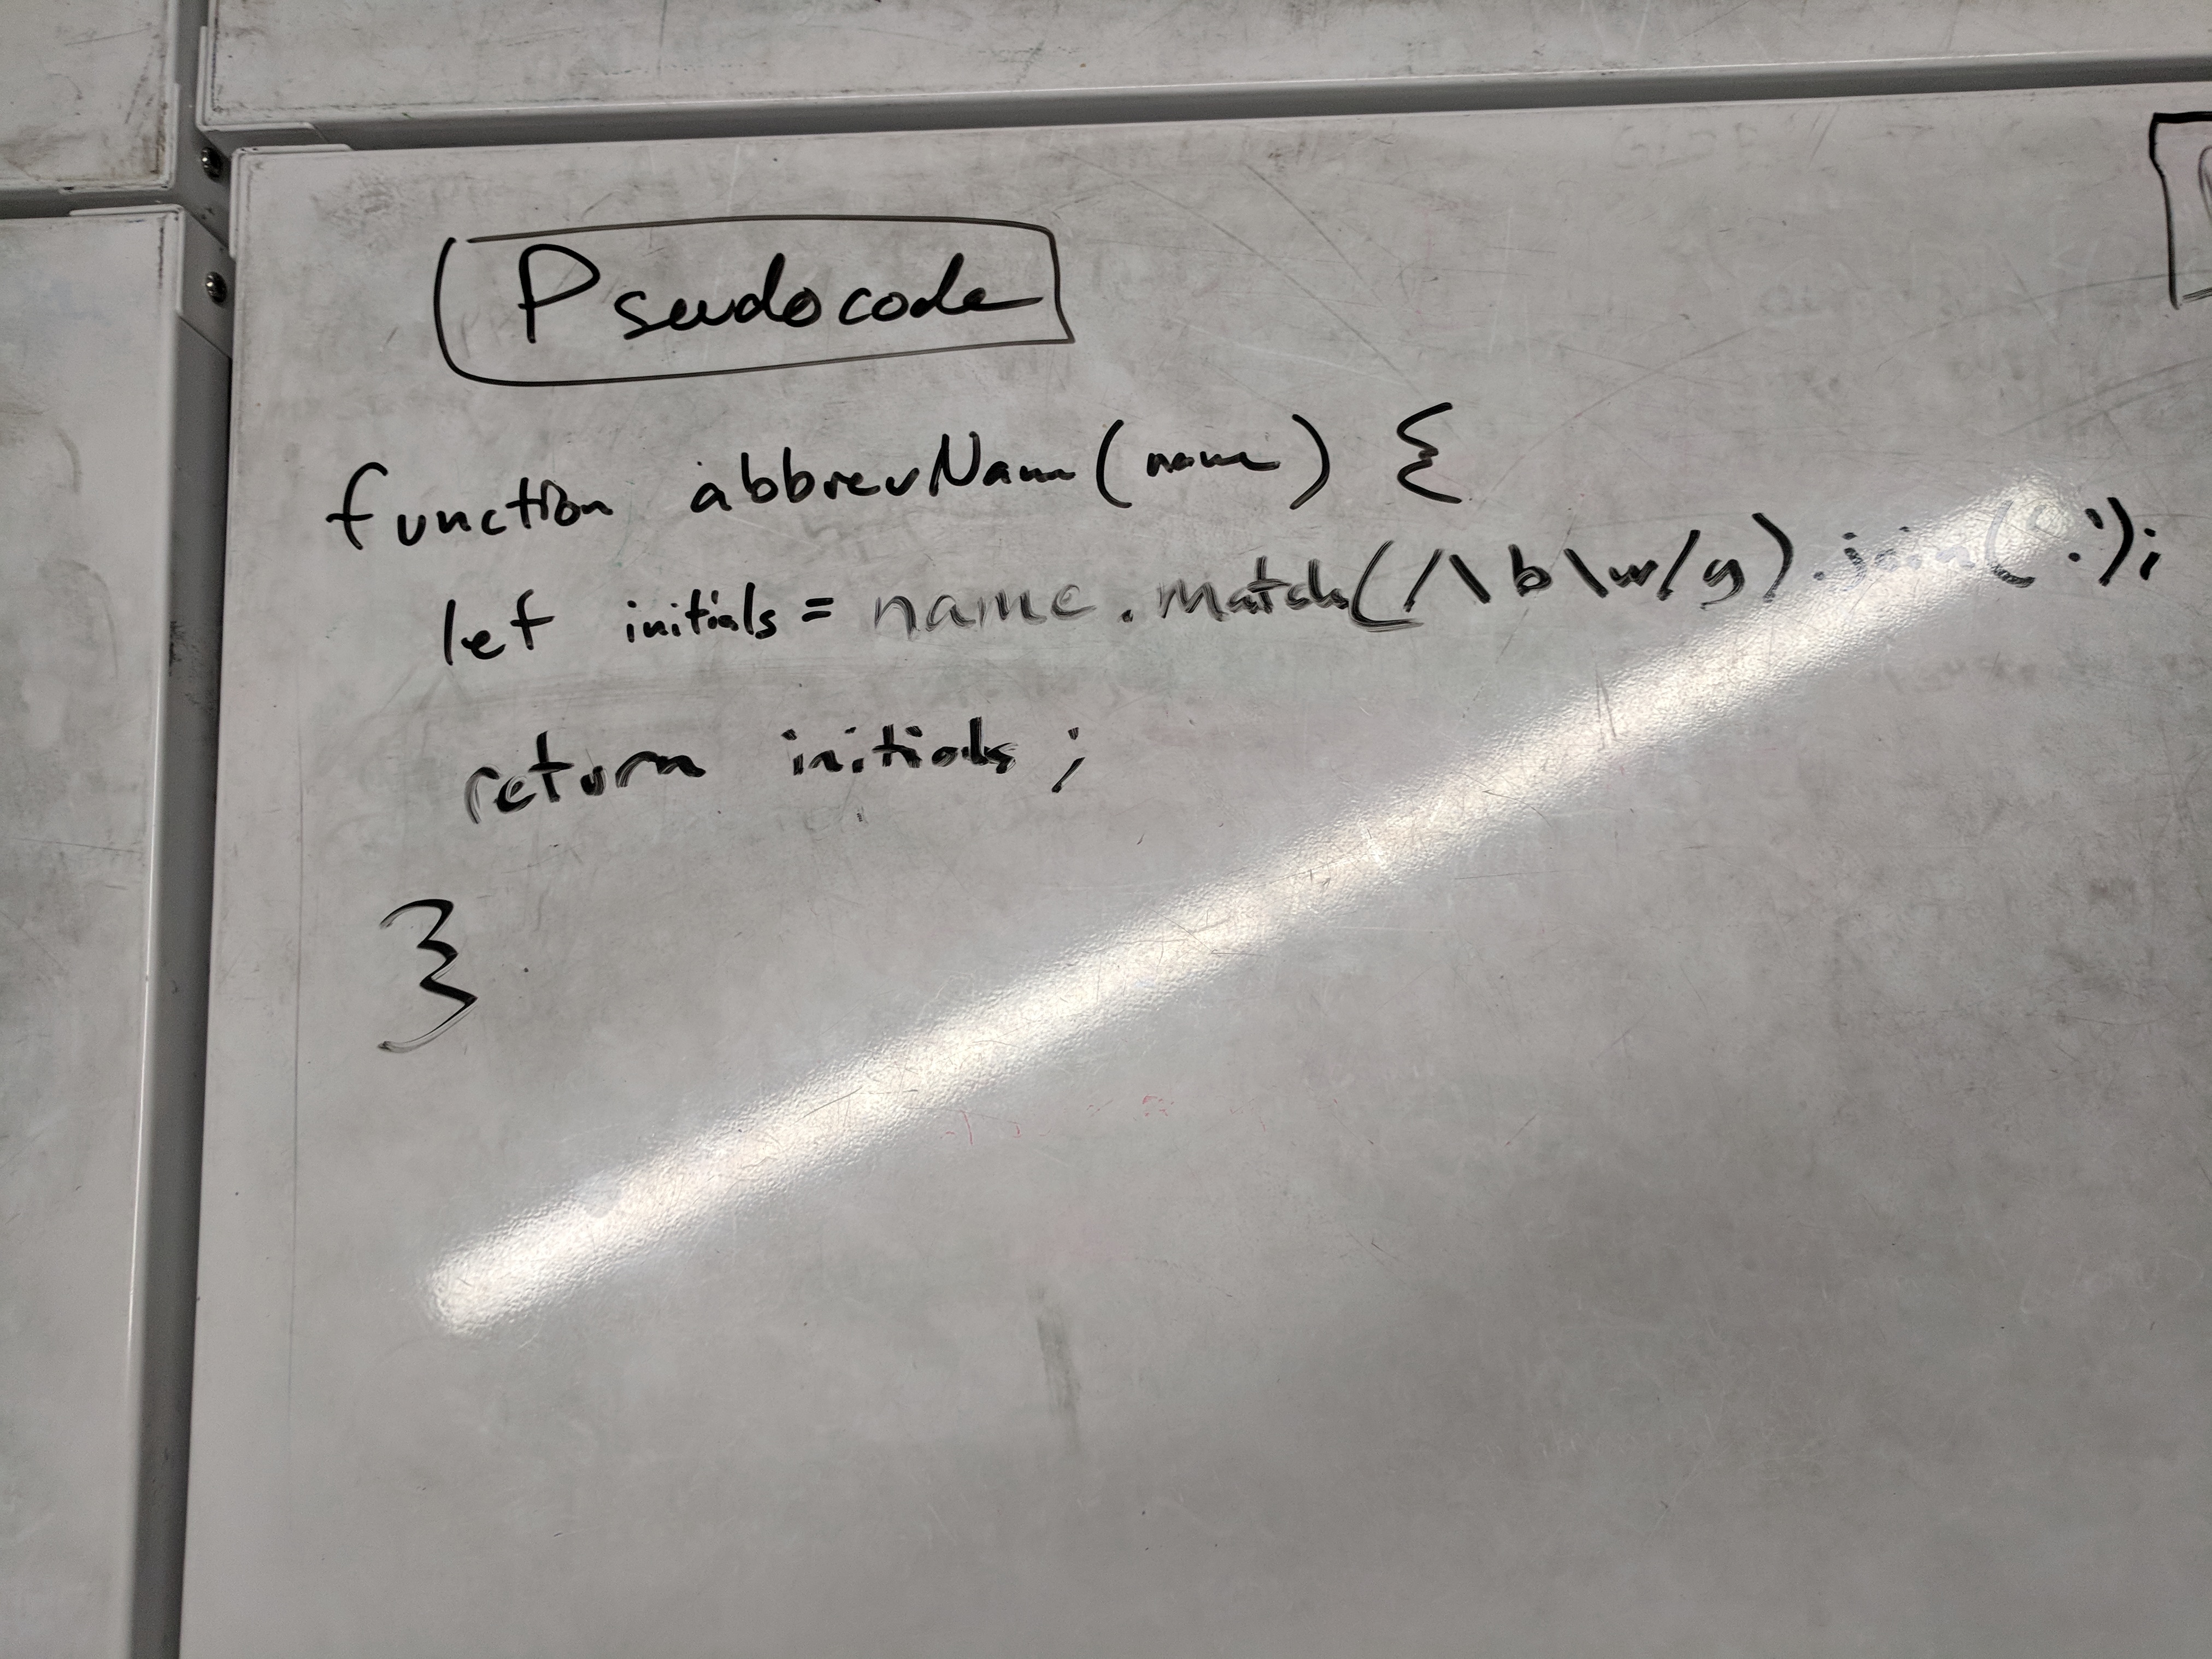 Pseudocode
function abbrevName(name) {
let initials = name.match(/\b\w/g).join('.');
return initials;
}